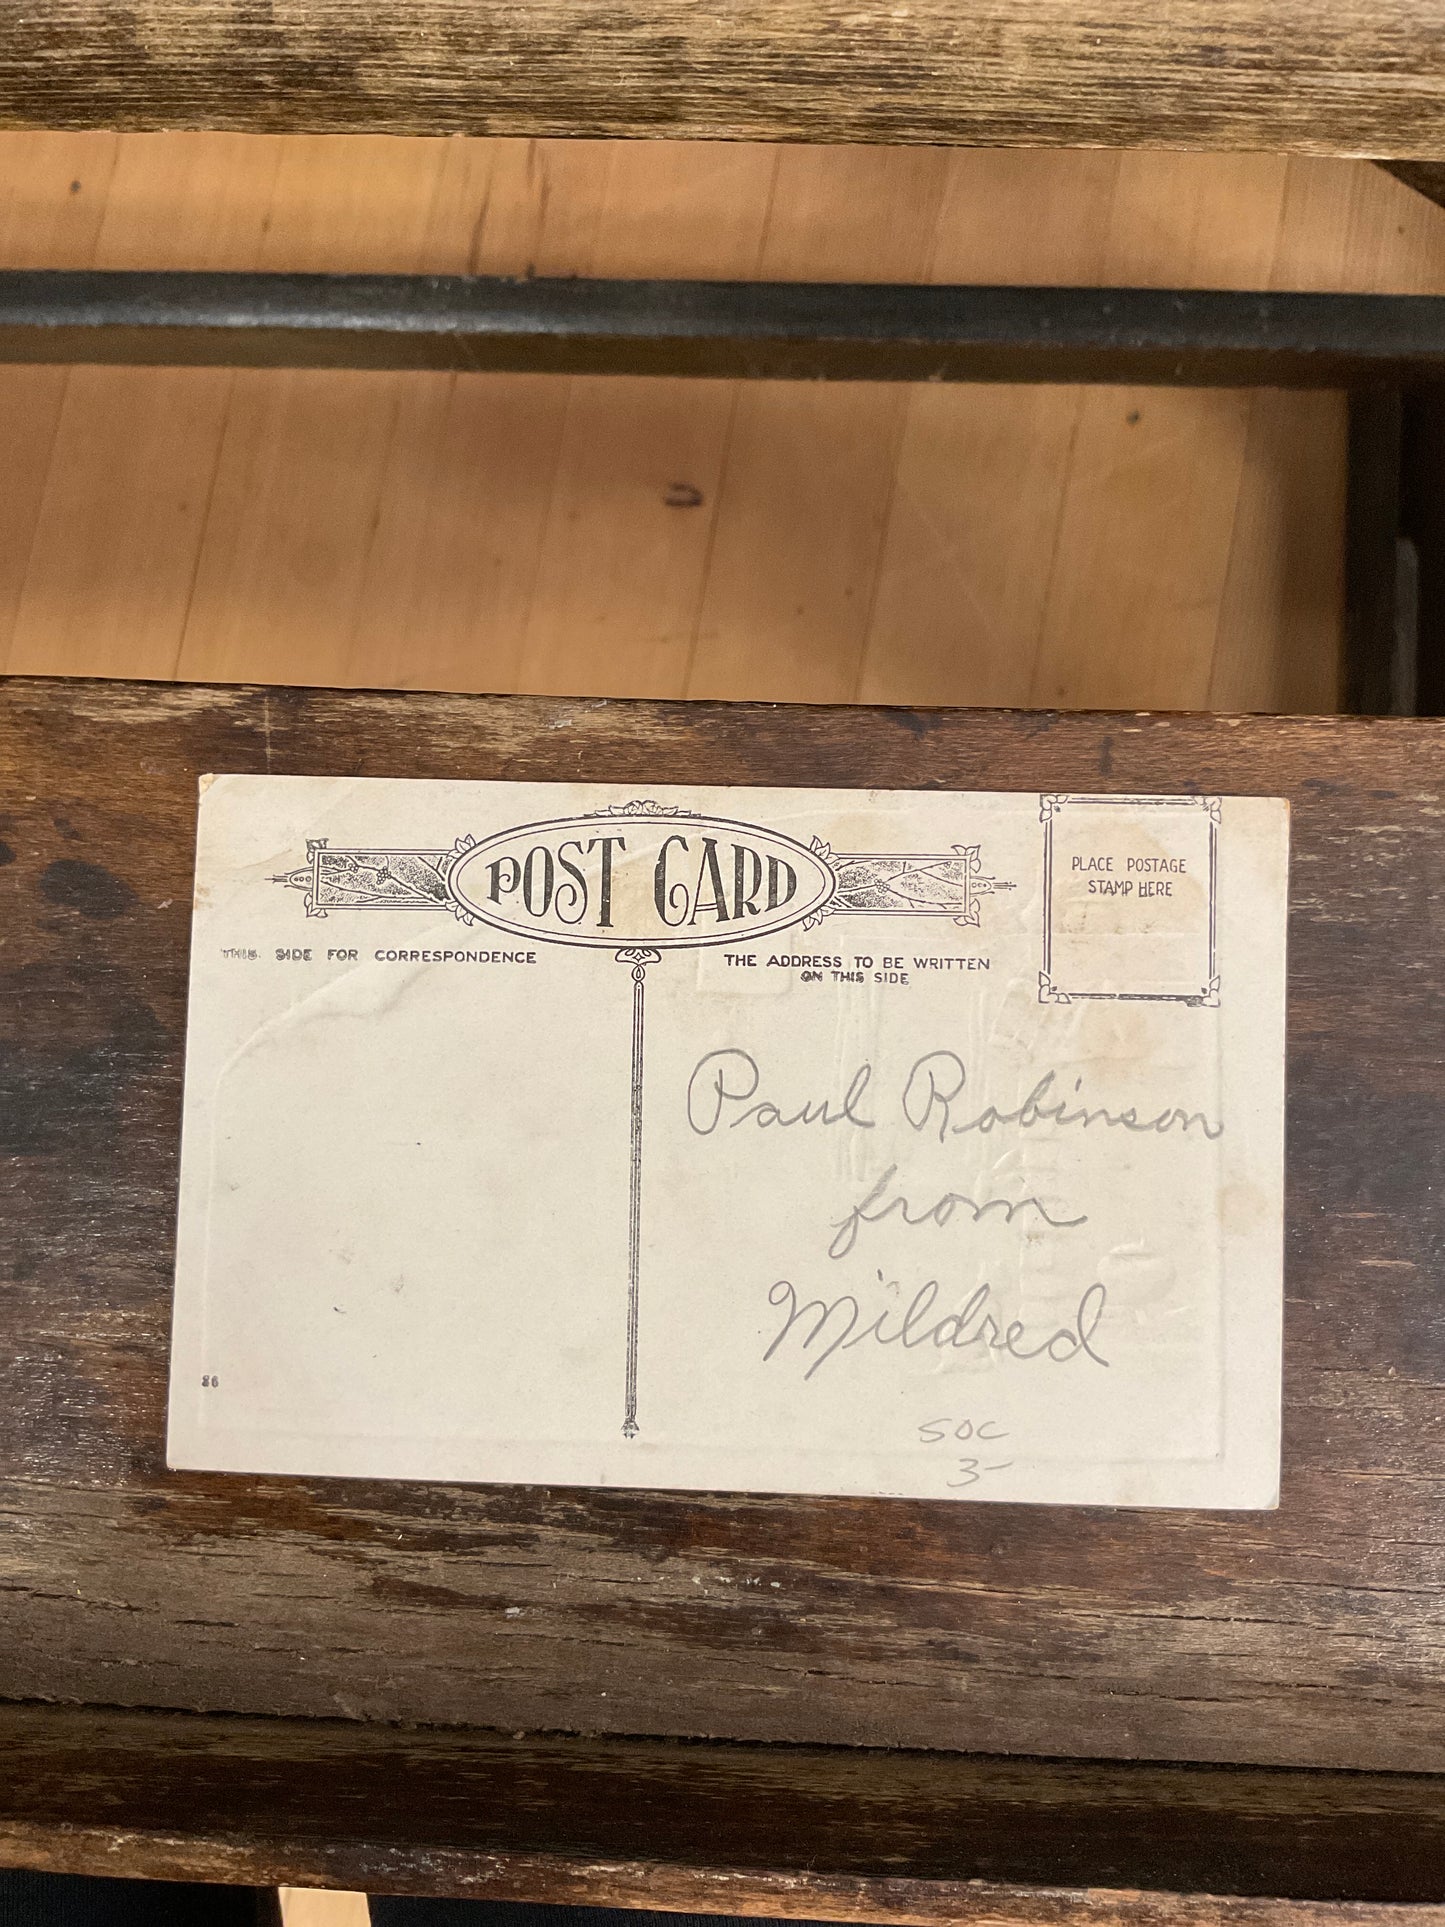 POST CARD
PLACE POSTAGE
STAMP HERE
THIS SIDE FOR CORRESPONDENCE
THE ADDRESS TO BE WRITTEN
ON THIS SIDE
Paul Robinson
from
Mildred
SOC
3-